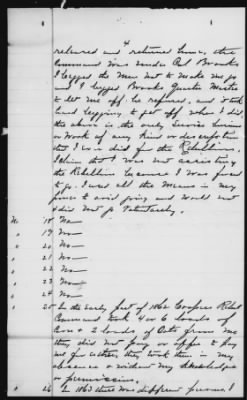 4
released and returned home, the
Command was under Col Brooks
I begged the Men not to make me go
and I begged Brooks Quarter Master
to let me off. he refused, and it took
hard begging to get off when I did,
the above is the only service hiring
or work of any kind or description
that I ever did for the Rebellion,
I claim that I was not assisting
the Rebellion because I was forced
to go. I used all the means in my
power to avoid going and would not
& did not go Voluntarily.
18 No—
" 19 No—
" 20 No—
" 21 No—
" 22 No—
" 23 No—
" 24 No—
" 25 In the early part of 1862 Coopers Rebel
Command took 4 or 6 loads of
Corn & 2 loads of Oats from me
they did not pay or offer to pay
me for either, they took them in my
absence & without my knowledge
or permission.
" 26 In 1863 there was different persons, I